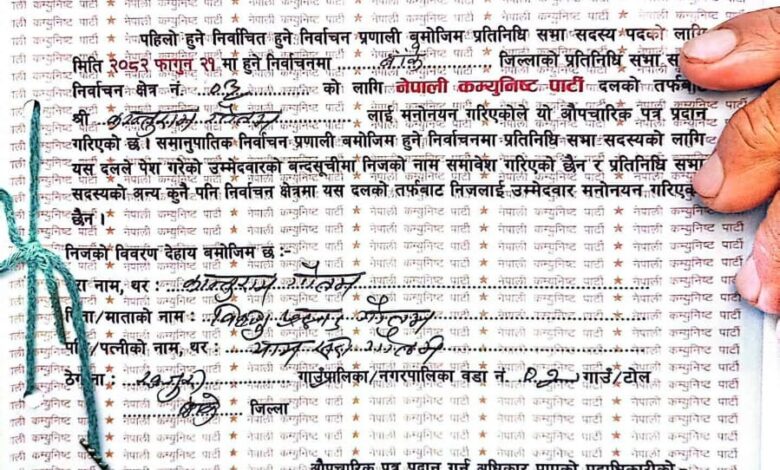 पहिलो हुने निर्वाचित हुने निर्वाचन प्रणाली बमोजिम प्रतिनिधि सभा सदस्य पदको लागि
मिति २०८२ फागुन २१ मा हुने निर्वाचनमा बाँके जिल्लाको प्रतिनिधि सभा
निर्वाचन क्षेत्र नं. ०३ को लागि नेपाली कम्युनिष्ट पार्टी दलको तर्फबाट
श्री गौतम लाई मनोनयन गरिएकोले यो औपचारिक पत्र प्रदान
गरिएको छ। समानुपातिक निर्वाचन प्रणाली बमोजिम हुने निर्वाचनमा प्रतिनिधि सभाको लागि
यस दलले पेश गरेको उम्मेदवारको बन्दसूचीमा निजको नाम समावेश गरिएको छैन र प्रतिनिधि सभा
सदस्यको अन्य कुनै पनि निर्वाचन क्षेत्रमा यस दलको तर्फबाट निजलाई उम्मेदवार मनोनयन गरिएको
छैन।
निजको विवरण देहाय बमोजिम छ :-
नाम, थर : गौतम
/माताको नाम : विष्णु प्रसाद गौतम
/पत्नीको नाम, थर :
ठेगाना : गाउँपालिका/नगरपालिका वडा नं. गाउँ/टोल
बाँके जिल्ला
औपचारिक पत्र प्रदान गर्न अधिकार पाएको पदाधिकारीको